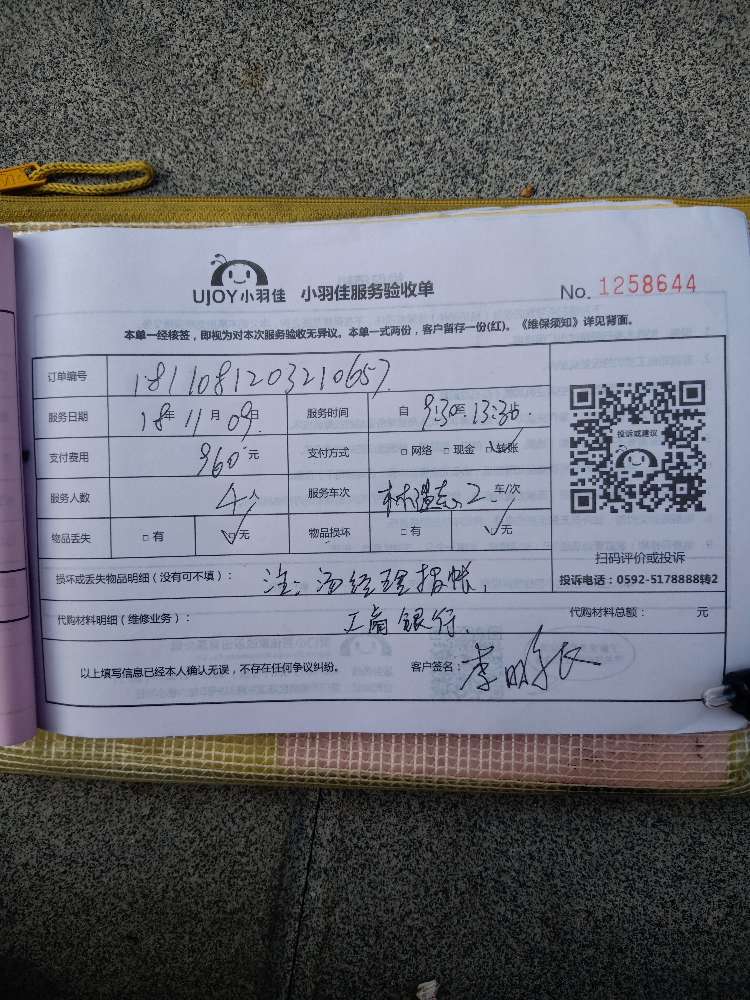 UJOY小羽佳 小羽佳服务验收单 No. 1258644
本单一经核签，即视为对本次服务验收无异议。本单一式两份，客户留存一份(红)。《维保须知》详见背面。
订单编号 1811081203210657
服务日期 18年11月09日 服务时间 自 9:30至 13:30止
支付费用 960元 支付方式 □网络 □现金 ☑转账
投诉或建议
服务人数 4人 服务车次 林 2 车/次
物品丢失 □有 ☑无 物品损坏 □有 ☑无
扫码评价或投诉
投诉电话：0592-5178888转2
损坏或丢失物品明细（没有可不填）： 注：汤经理指帐，
代购材料明细（维修业务）： 工商银行. 代购材料总额： 元
以上填写信息已经本人确认无误，不存在任何争议纠纷。 客户签名： 李